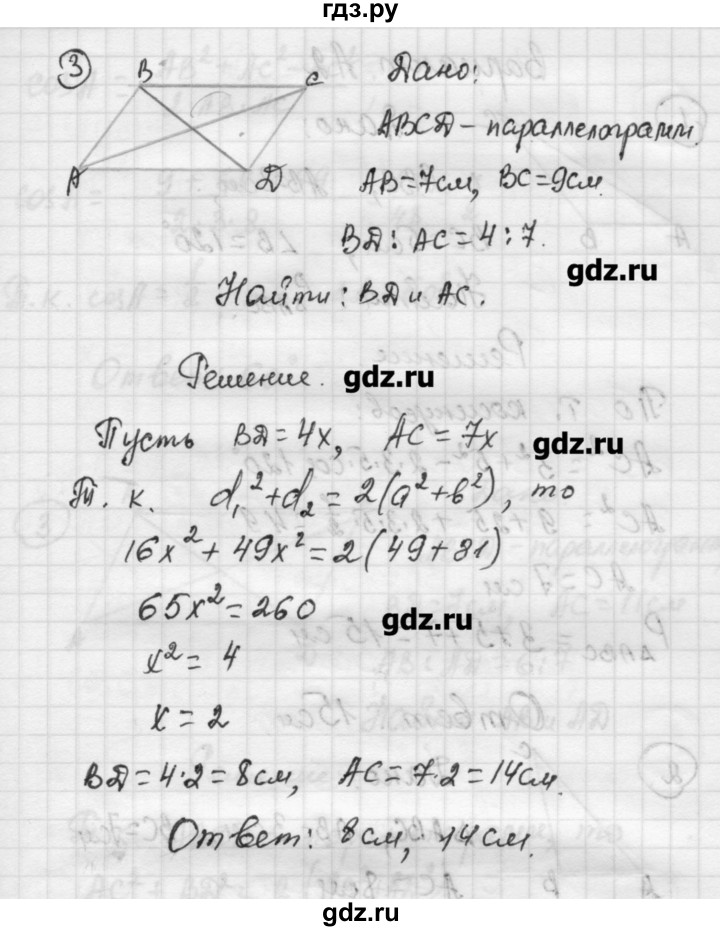 гдз.ру
3 B C Дано:
ABCD - параллелограмм.
A D AB=7см, BC=9см.
BD : AC = 4 : 7.
gdz.ru
Найти: BD и AC.
Решение. gdz.ru
Пусть BD = 4x, AC = 7x gdz.ru
Т. к. d₁² + d₂ = 2(a² + b²), то
16x² + 49x² = 2(49 + 81)
65x² = 260 gdz.ru
x² = 4
x = 2
BD = 4·2 = 8см, AC = 7·2 = 14см.
Ответ: 8см, 14см.
gdz.ru